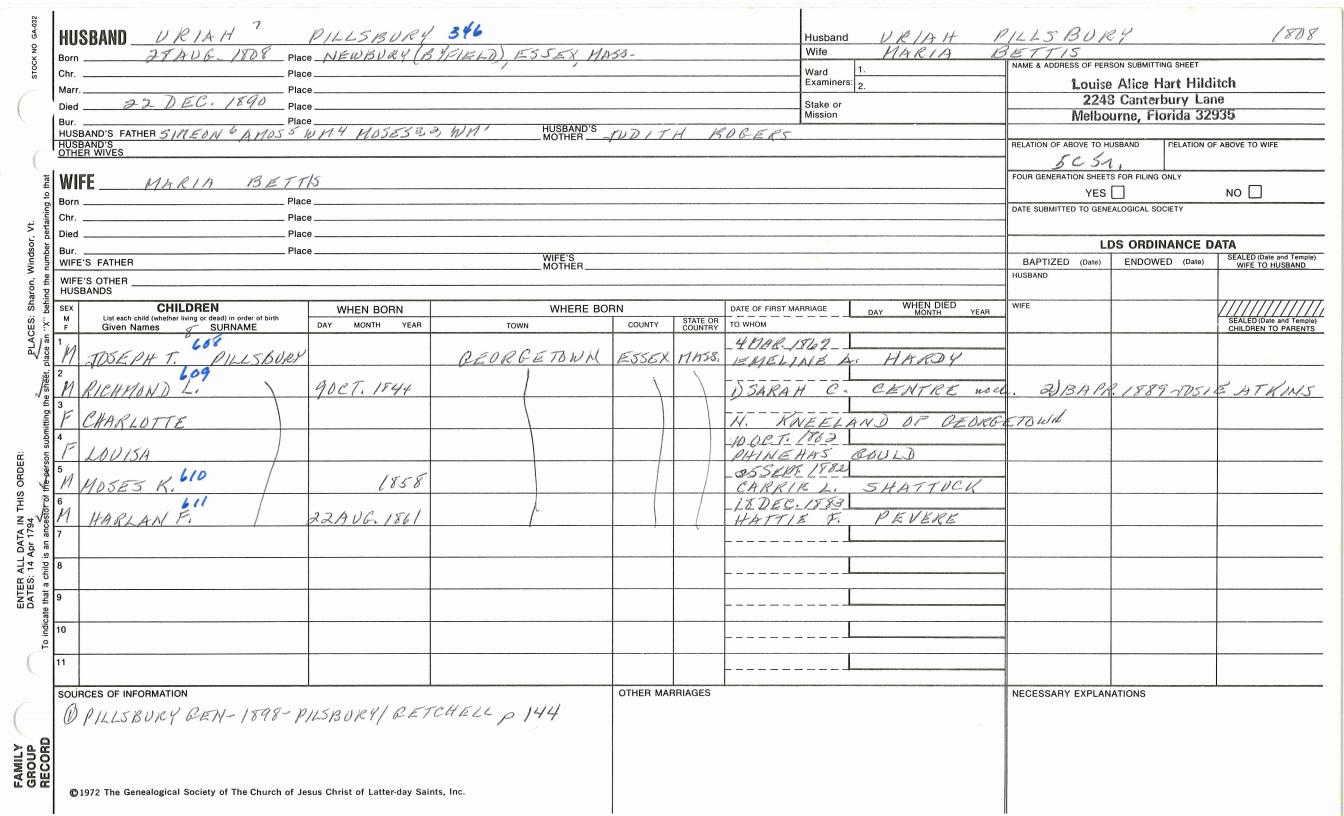 STOCK NO GA-032
HUSBAND URIAH 7 PILLSBURY 346
Husband URIAH PILLSBURY 1808
Wife MARIA BETTIS
Born AUG. 1808 Place NEWBURY (BYFIELD), ESSEX, MASS-
Chr. Place
Marr. Place
Died 22 DEC. 1890 Place
Bur. Place
HUSBAND'S FATHER SIMEON 6 AMOS 5 WM 4 MOSES WM 1 HUSBAND'S MOTHER JUDITH ROGERS
HUSBAND'S OTHER WIVES
Ward Examiners: 1.
2.
Stake or Mission
NAME & ADDRESS OF PERSON SUBMITTING SHEET
Louise Alice Hart Hilditch
2248 Canterbury Lane
Melbourne, Florida 32935
RELATION OF ABOVE TO HUSBAND RELATION OF ABOVE TO WIFE
5C 5r.
FOUR GENERATION SHEETS FOR FILING ONLY
YES NO
DATE SUBMITTED TO GENEALOGICAL SOCIETY
WIFE MARIA BETTIS
Born Place
Chr. Place
Died Place
Bur. Place
WIFE'S FATHER WIFE'S MOTHER
WIFE'S OTHER HUSBANDS
LDS ORDINANCE DATA
BAPTIZED (Date) ENDOWED (Date) SEALED (Date and Temple) WIFE TO HUSBAND
HUSBAND
WIFE
SEALED (Date and Temple) CHILDREN TO PARENTS
SEX M F
CHILDREN
List each child (whether living or dead) in order of birth
Given Names 8 SURNAME
WHEN BORN
DAY MONTH YEAR
WHERE BORN
TOWN COUNTY STATE OR COUNTRY
DATE OF FIRST MARRIAGE
TO WHOM
WHEN DIED
DAY MONTH YEAR
608 4 MAR. 1862
1 M JOSEPH T. PILLSBURY GEORGETOWN ESSEX MASS. EMELINE A. HARDY
609
2 M RICHMOND L. 9 OCT. 1844 1) SARAH C. CENTRE 2) APR. 1889 - JOSIE ATKINS
3 F CHARLOTTE M. KNEELAND OF GEORGETOWN
10 OCT. 1862
4 F LOUISA PHINEHAS GOULD
610 25 SEPT. 1882
5 M MOSES K. 1858 CARRIE L. SHATTUCK
611 18 DEC. 1883
6 M HARLAN F. 22 AUG. 1861 HATTIE F. PEVERE
7
8
9
10
11
SOURCES OF INFORMATION
① PILLSBURY GEN - 1898 - PILSBURY/GETCHELL p 144
OTHER MARRIAGES
NECESSARY EXPLANATIONS
©1972 The Genealogical Society of The Church of Jesus Christ of Latter-day Saints, Inc.
FAMILY GROUP RECORD
ENTER ALL DATA IN THIS ORDER:
DATES: 14 Apr 1794
PLACES: Sharon, Windsor, Vt.
To indicate that a child is an ancestor of the person submitting the sheet, place an "X" behind the number pertaining to that